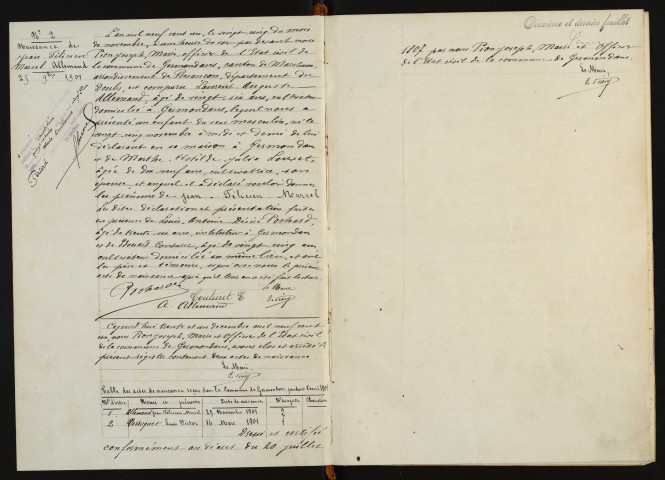 N° 2
Naissance de
Jean Félicien
Marcel Allemand
25 9bre 1901
L'an mil neuf cent un, le vingt cinq du mois
de novembre, à une heure du soir par devant nous
Pion Joseph, Maire officier de l'Etat civil de
la commune de Germondans, canton de Marchaux
arrondissement de Besançon, département du
Doubs, est comparu Laurent Auguste
Allemand, âgé de vingt six ans, cultivateur
domicilié à Germondans, lequel nous a
présenté un enfant du sexe masculin, né le
vingt cinq novembre à midi et demi de lui
déclarant en sa maison à Germondans
et de Marthe Julia
âgée de dix neuf ans, cultivatrice, son
épouse, et auquel il a déclaré vouloir donner
les prénoms de Jean Félicien Marcel
Les dites déclaration et présentation faites
en présence de Louis Antoine Désiré Pochard,
âgé de trente un ans, instituteur à Germondans
et de Edouard Couturet, âgé de vingt cinq ans
cultivateur domicilié au même lieu, et ont
les père et témoins, signé avec nous le présent
acte de naissance après qu'il leur en a été fait lecture.
Pochard Couturet E. Le Maire
A. Allemand J. Pion
Cejourd'hui trente et un décembre mil neuf cent
un, nous Pion Joseph, Maire et officier de l'Etat civil
de la commune de Germondans, avons clos et arrêté le
présent registre contenant deux actes de naissance
Le Maire,
J. Pion
Table des actes de naissance reçus dans la Commune de Germondans pendant l'année 1901
N° d'ordre Noms et prénoms Date de naissance
1 Allemand Jean Félicien Marcel 25 Novembre 1901 2
2 Louis Victor 14 Mars 1901 1
Dressé et certifié
conformément au décret du 20 juillet
Deuxième et dernier feuillet
1807 par nous Pion Joseph, Maire et officier
de l'Etat civil de la commune de Germondans.
Le Maire,
J. Pion